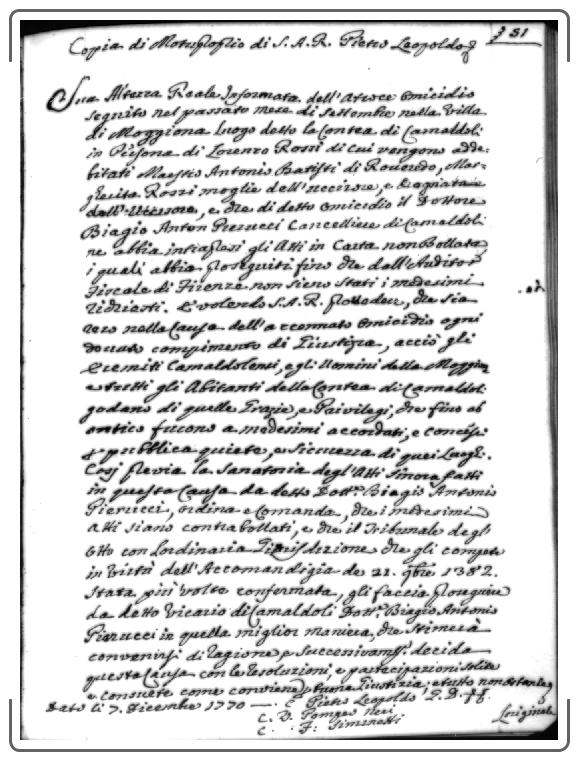 § 31
Copia di Motuproprio di S. A. R. Pietro Leopoldo
Sua Altezza Reale Informata dell'Atroce Omicidio
seguito nel passato mese di Settembre nella Villa
di Moggiona Luogo detto la Contea di Camaldoli
in Persona di Lorenzo Rossi di cui vengono adde-
bitati Maestro Antonio Batisti di Roveredo, Mar-
gherita Rossi moglie dell'ucciso, e
e, che di detto Omicidio il Dottore
Biagio Anton Pierucci Cancelliere di Camaldoli
ne abbia intrapresi gli Atti in Carta non Bollata,
i quali abbia proseguiti fino che dall'Auditore
Fiscale di Firenze non sieno stati i medesimi
richiesti. E volendo S. A. R. provveder, che sia
reso nella Causa dell'accennato Omicidio ogni
dovuto compimento di Giustizia, acciò gli
Eremiti Camaldolensi, e gli Uomini della Moggiona
e tutti gli Abitanti della Contea di Camaldoli
godano di quelle Grazie, e Privilegi, che fino ab
antico furono a medesimi accordati, e concessi
p pubblica quiete, e sicurezza di quei Luoghi.
Così previa la Sanatoria degl'Atti sinora fatti
in questa Causa da detto Dott. Biagio Antonio
Pierucci, ordina e Comanda, che i medesimi
atti siano contrabollati, e che il Tribunale degl'
Otto con l'ordinaria Giurisdizione che gli compete
in virtù dell'Accomandigia de 21. 9bre 1382.
Stata più volte confermata, gli faccia proseguire
da detto Vicario di Camaldoli Dott. Biagio Antonio
Pierucci in quella miglior maniera, che stimerà
convenirsi di ragione, e successivam. decida
questa Causa con le resoluzioni, e partecipazioni solite
e consuete come conviene p buona Giustizia; e tutto non ostante
Dato li 7. Dicembre 1770 — C Pietro Leopoldo G. D.
C. D. Pompeo Neri
C. F. Siminetti
L'originale